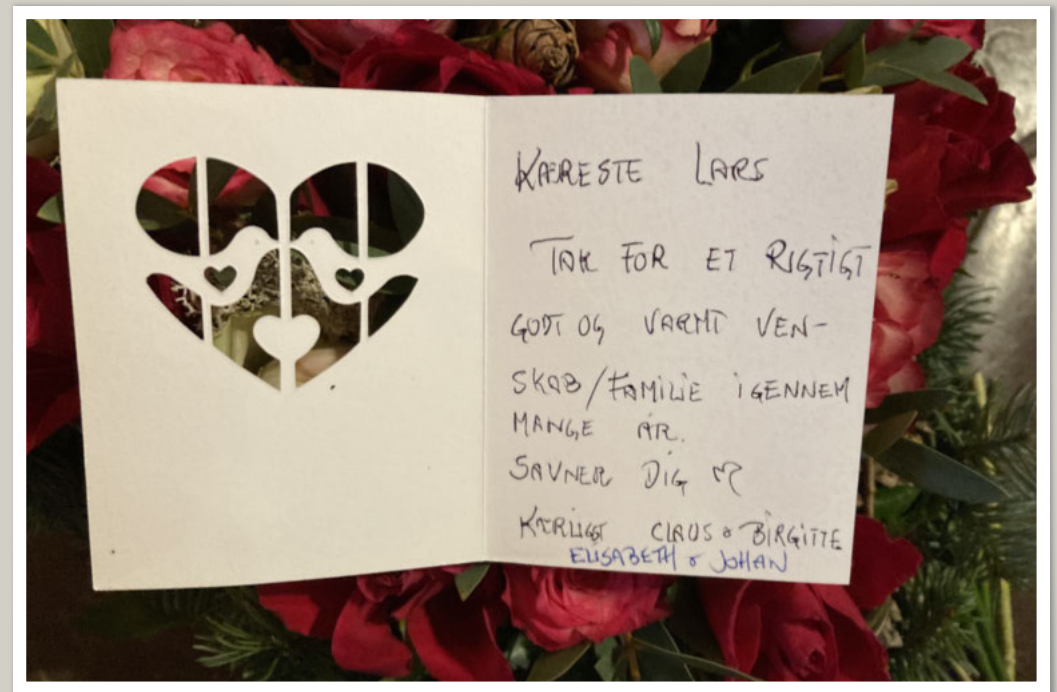 KÆRESTE LARS
TAK FOR ET RIGTIGT
GODT OG VARMT VEN-
SKAB/FAMILIE IGENNEM
MANGE ÅR.
SAVNER DIG ♡
KÆRLIGST CLAUS & BIRGITTE
ELISABETH & JOHAN